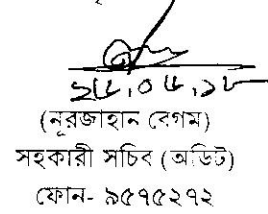 ২৫.০৫.১৮
(নূরজাহান বেগম)
সহকারী সচিব (অডিট)
ফোন- ৯৫৭৫২৭২